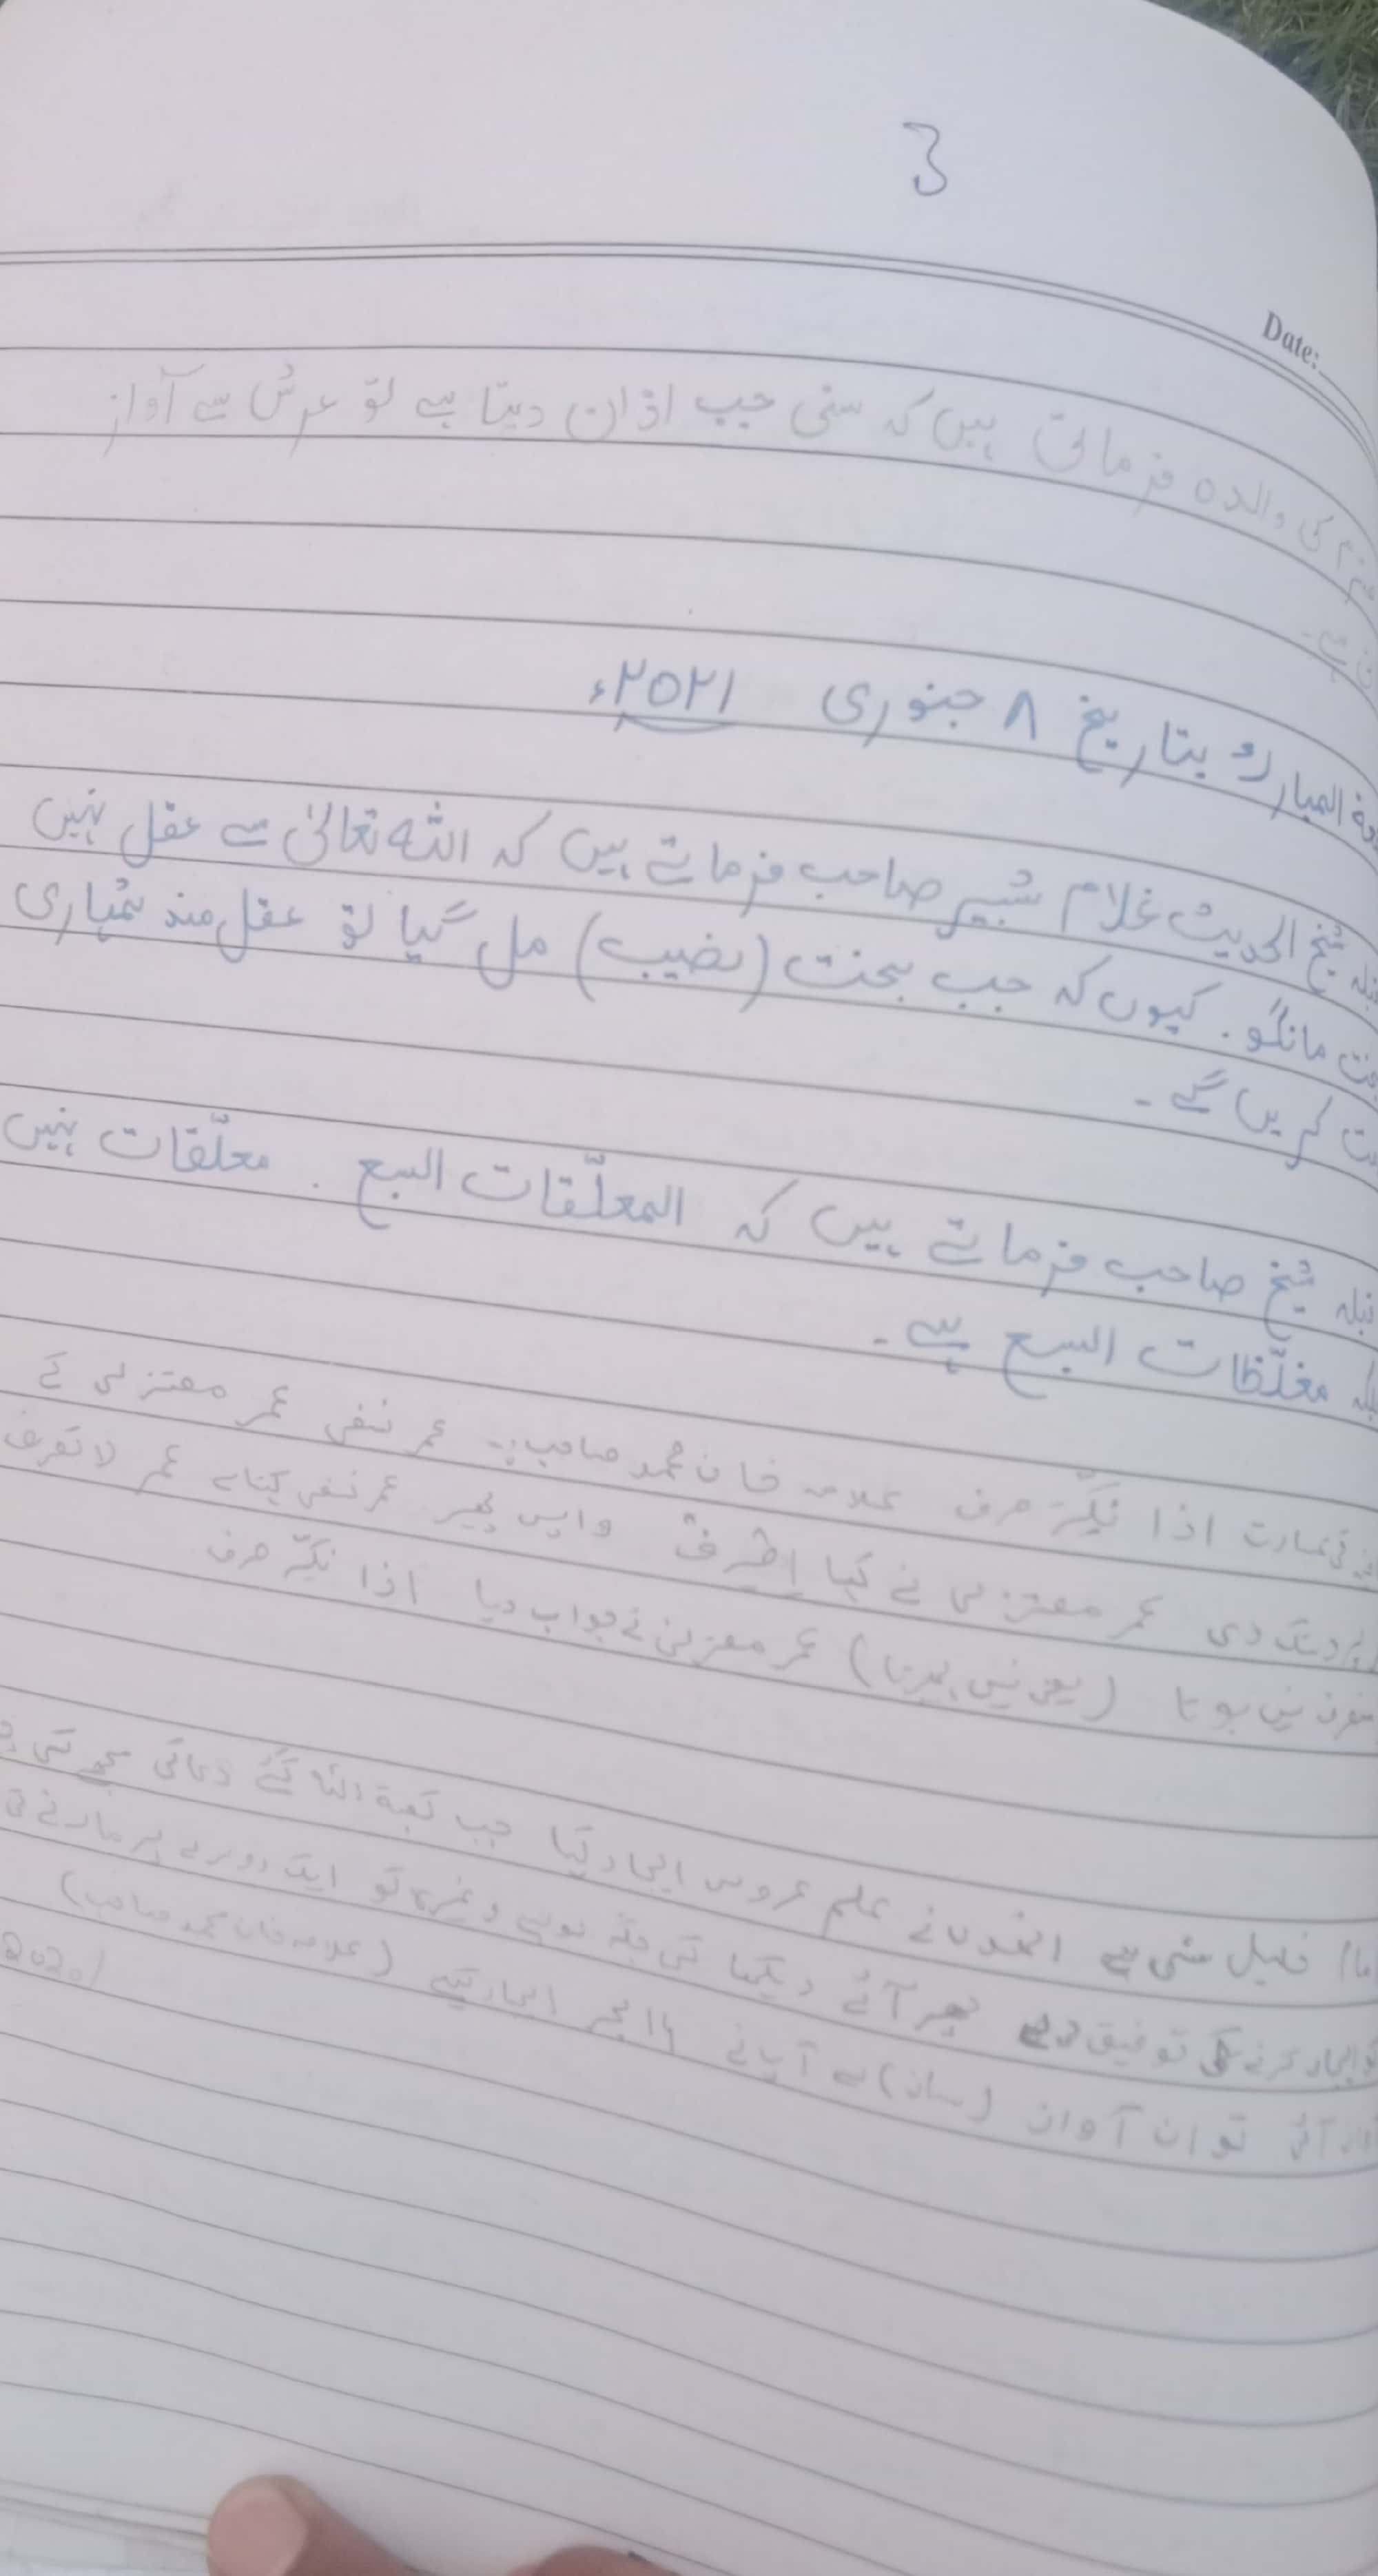 3
Date:
کی والدہ فرماتی ہیں کہ سنی جب اذان دیتا ہے تو عرش سے آواز
المبارک بتاریخ ۸ جنوری ۲۰۲۱ء
شیخ الحدیث غلام شبیر صاحب فرماتے ہیں کہ اللہ تعالیٰ سے عقل نہیں
مانگو. کیوں کہ جب بخت (نصیب) مل گیا تو عقل مند تمہاری
کریں گے ۔
قبلہ شیخ صاحب فرماتے ہیں کہ المعلّقات السبع . معلّقات نہیں
بلکہ مغلّظات السبع ہے ۔
عبارت اذا نکّر صرف علامہ خان محمد صاحب :۔ عمر نسفی عمر معتزلی کے
دستک دی عمر معتزلی نے کہا اِنصَرِف واپس پھیر عمر نسفی کہنا ہے عمر لا تصرف
نہیں ہوتا (یعنی نہیں پھیرتا) عمر معتزلی نے جواب دیا اذا نکّر صرف
خلیل سنی ہے انھوں نے علم عروض ایجاد کیا جب کعبۃ اللہ گئے دعا کی مجھے کسی
ایجاد کرنے کی توفیق دے پھر آئے دیکھا کسی جگہ دھوبی وغیرہ تو ایک دوسرے پر مارنے کی
آئی تو ان آواز (ساز) سے آپ نے بحر ایجاد کیے (علامہ خان محمد صاحب)
2020/